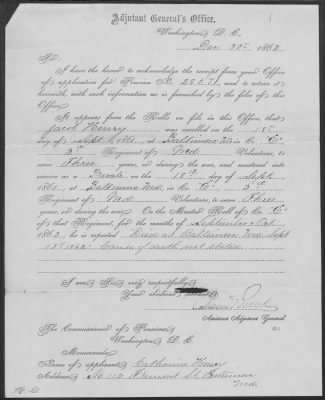 Adjutant General's Office,
Washington, D. C.
Dec 30th 1862
Sir:
I have the honor to acknowledge the receipt from your Office
of application for Pension No. 2857, and to return it
herewith, with such information as is furnished by the files of this
Office.
It appears from the Rolls on file in this Office, that
Jacob Henry was enrolled on the 18th
day of Sept, 1861, at Baltimore Md in Co. "C"
5th Regiment of Md Volunteers, to serve
Three years, or during the war, and mustered into
service as a Private on the 18th day of Sept.
1861, at Baltimore Md, in Co. "C" 5th
Regiment of Md Volunteers, to serve Three
years, or during the war. On the Muster Roll of Co. "C"
of that Regiment, for the months of September & Oct.
1862, he is reported Died at Baltimore Md. Sept
13th 1862. Cause of death not stated.
I am Sir, very respectfully,
Your obedient servant,
Assistant Adjutant General
The Commissioner of Pensions,
Washington, D. C.
Memoranda:
Name of applicant, Catharine Henry
Address, No. 112 Fremont St. Baltimore
Md.